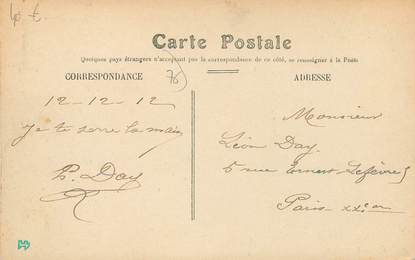 4 €
Carte Postale
Quelques pays étrangers n'acceptant pas la correspondance de ce côté, se renseigner à la Poste
CORRESPONDANCE
ADRESSE
12-12-12
Je te serre la main
P. Day
Monsieur
Léon Day
5 rue Ernest Lefèvre
Paris - XXe arr